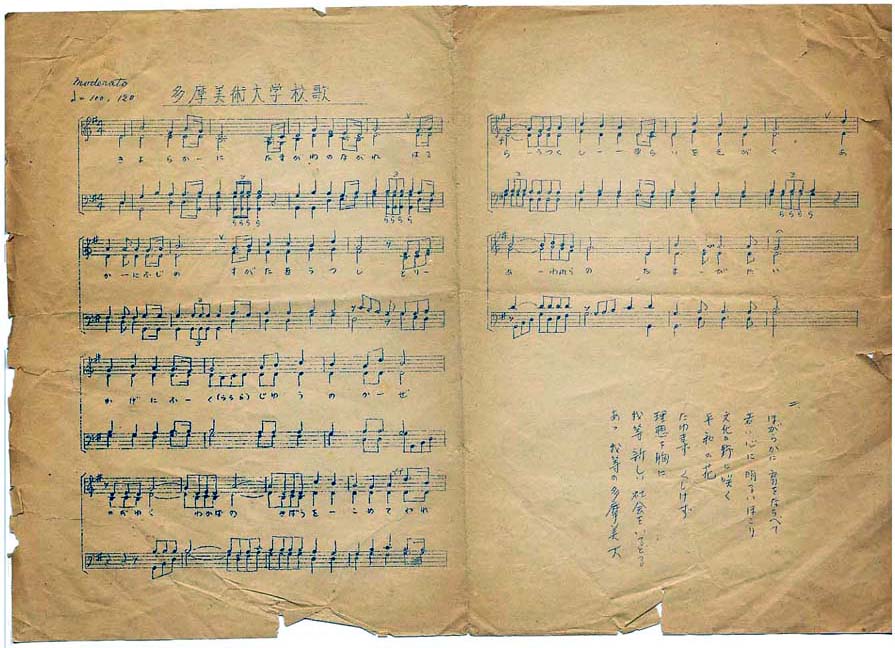 moderato
♩= 100, 120
多摩美術大学校歌
きよらかーに たまがわのながれ はる
らーうつくしーーきらいをえがく あ
ららららら
らららら
かーにふじの すがたをうつし とりー
あーわれらの たまーびだい
かげにふーく(ららら)じゆうのかーぜ
わかばの きぼうを一こめてわれ
二、
ほがらかに 肩をならべて
若い心に 明るいほこり
文化の野に咲く
平和の花
たゆまず くじけず
理想を胸に
我等 新しい 社会を
あゝ 我等の多摩美大